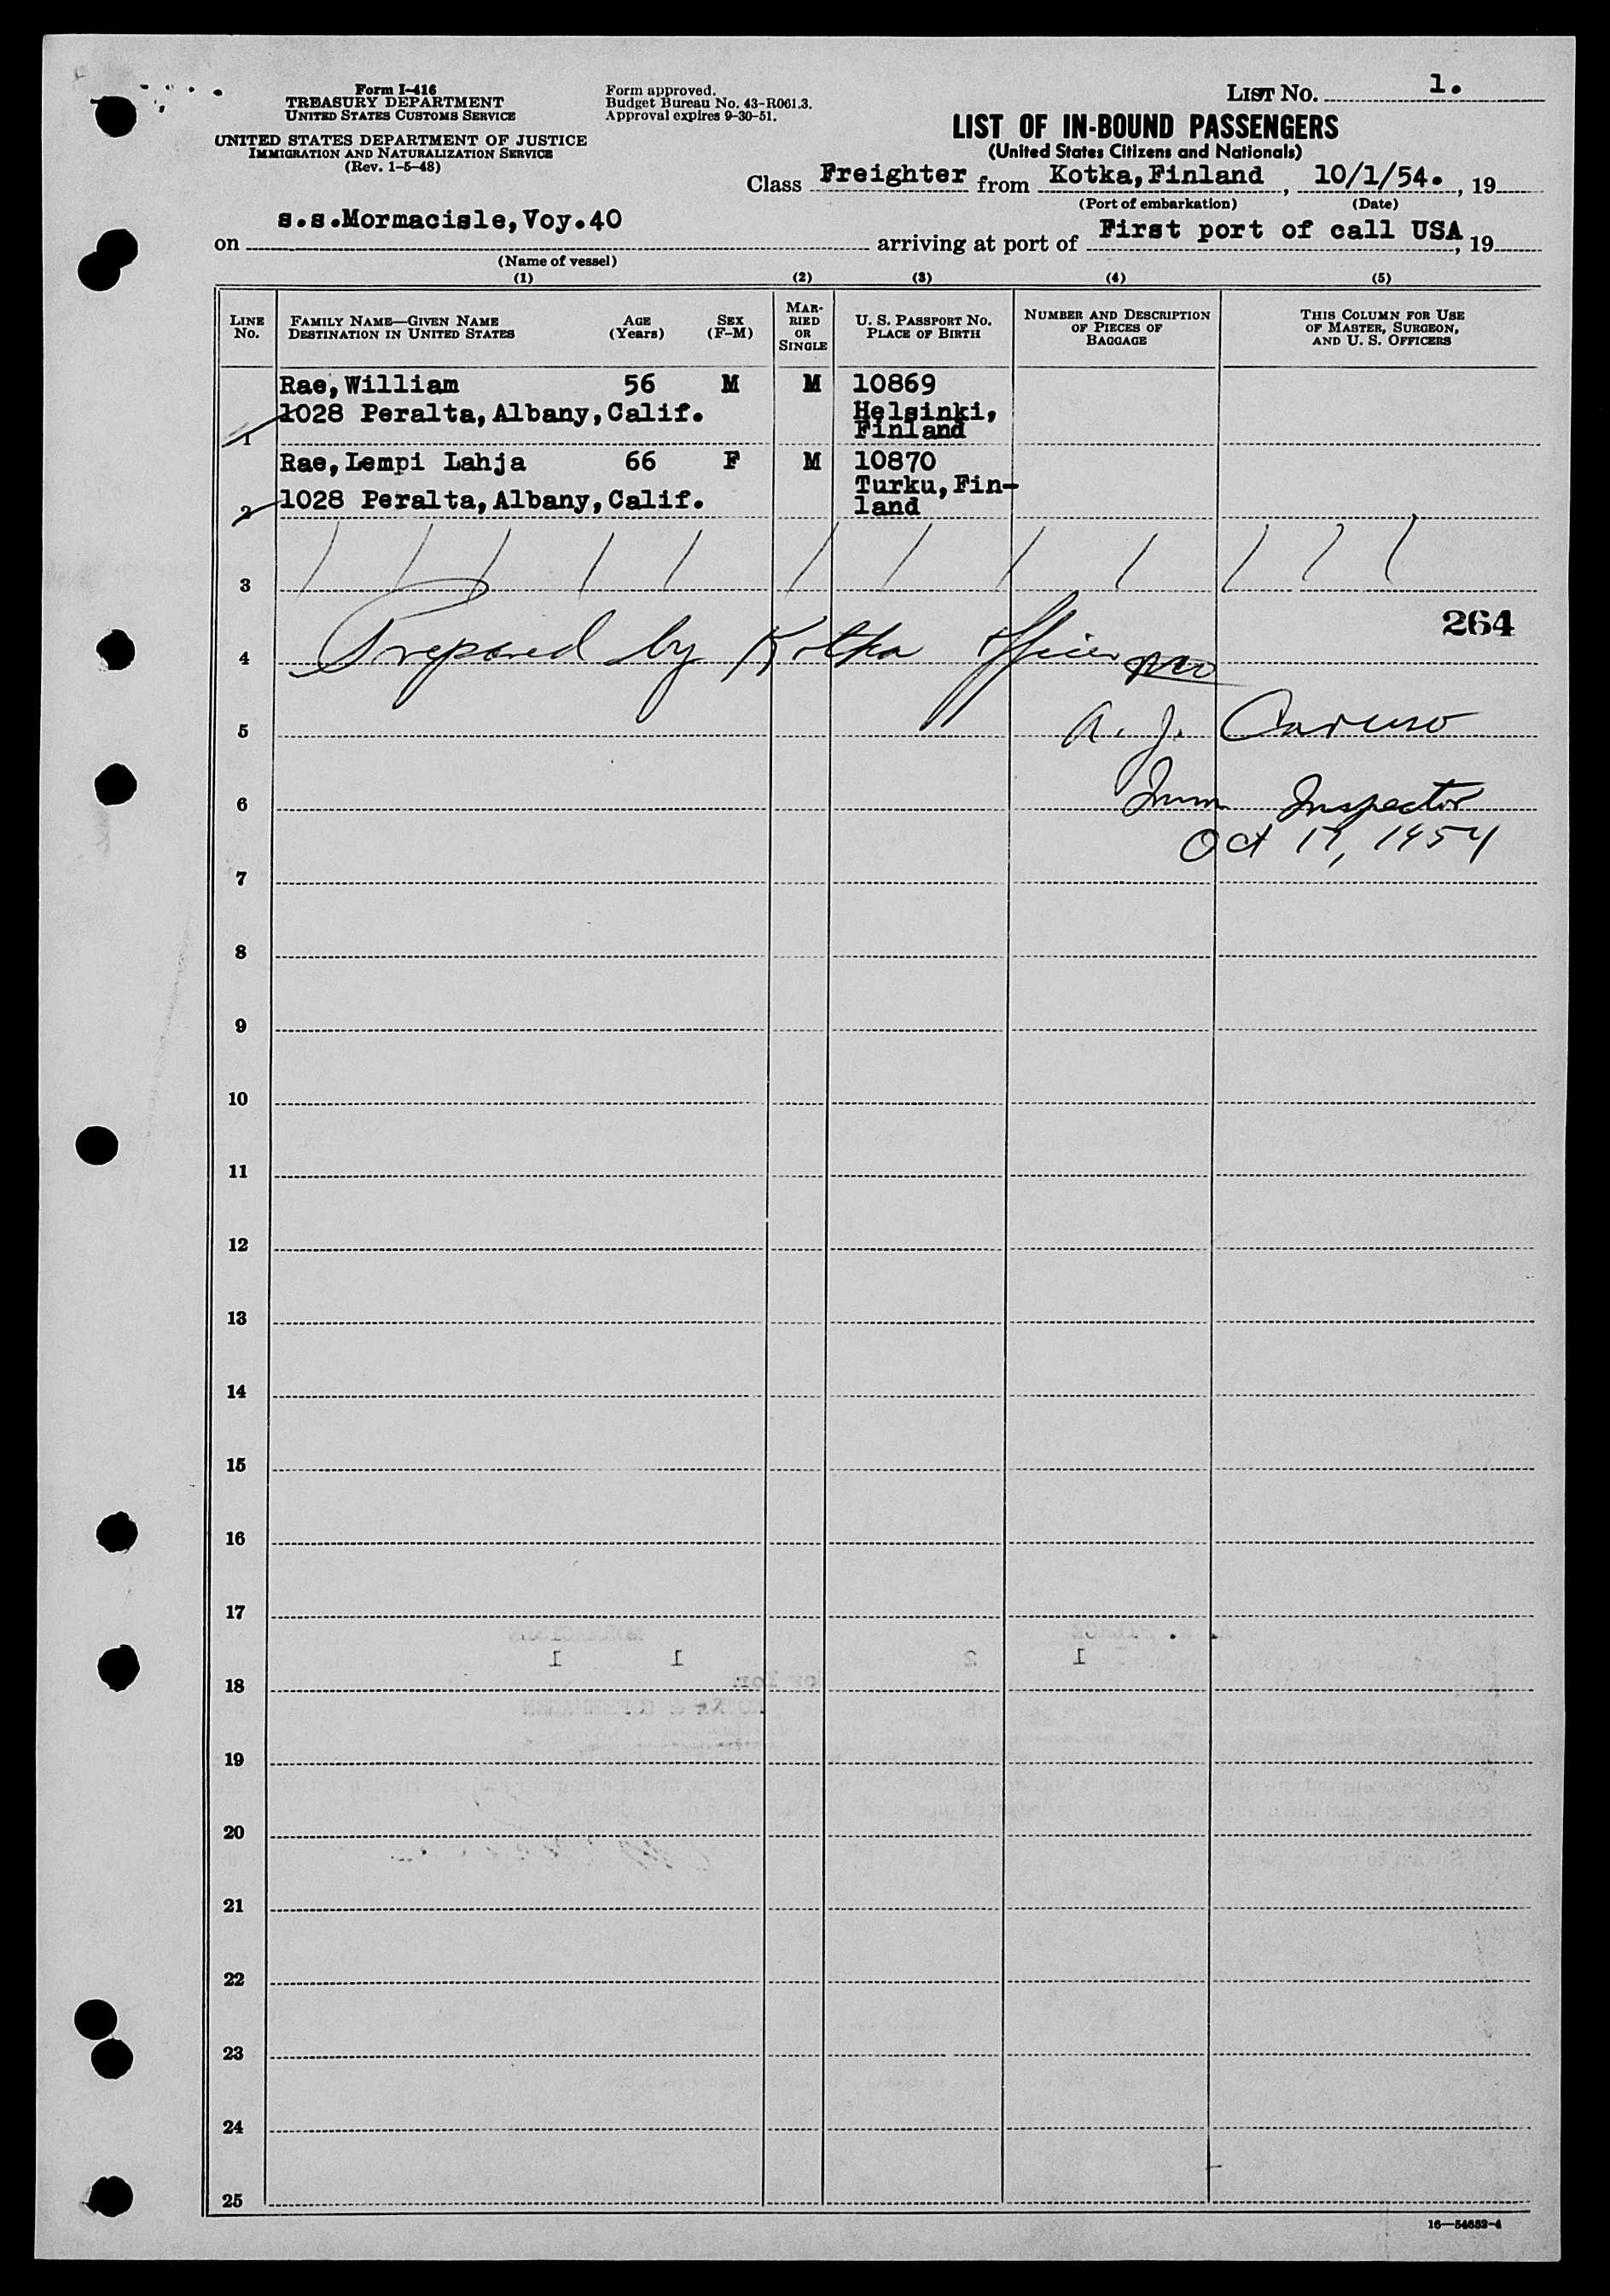 Form I-416
TREASURY DEPARTMENT
UNITED STATES CUSTOMS SERVICE
UNITED STATES DEPARTMENT OF JUSTICE
IMMIGRATION AND NATURALIZATION SERVICE
(Rev. 1-5-48)
Form approved.
Budget Bureau No. 43-R061.3.
Approval expires 9-30-51.
LIST No. 1.
LIST OF IN-BOUND PASSENGERS
(United States Citizens and Nationals)
Class Freighter from Kotka, Finland, 10/1/54., 19
(Port of embarkation) (Date)
on s.s.Mormacisle, Voy.40 arriving at port of First port of call USA, 19
(Name of vessel)
(1) (2) (3) (4) (5)
LINE No. FAMILY NAME—GIVEN NAME DESTINATION IN UNITED STATES AGE (Years) SEX (F-M) MARRIED OR SINGLE U. S. PASSPORT No. PLACE OF BIRTH NUMBER AND DESCRIPTION OF PIECES OF BAGGAGE THIS COLUMN FOR USE OF MASTER, SURGEON, AND U. S. OFFICERS
Rae, William 56 M M 10869
1 1028 Peralta, Albany, Calif. Helsinki, Finland
Rae, Lempi Lahja 66 F M 10870
2 1028 Peralta, Albany, Calif. Turku, Fin-land
3
264
4 Prepared by Kotka Office
5 A. J. Caruso
6 Imm Inspector
Oct 17, 1954
7
8
9
10
11
12
13
14
15
16
17
18
19
20
21
22
23
24
25
16—54652-4